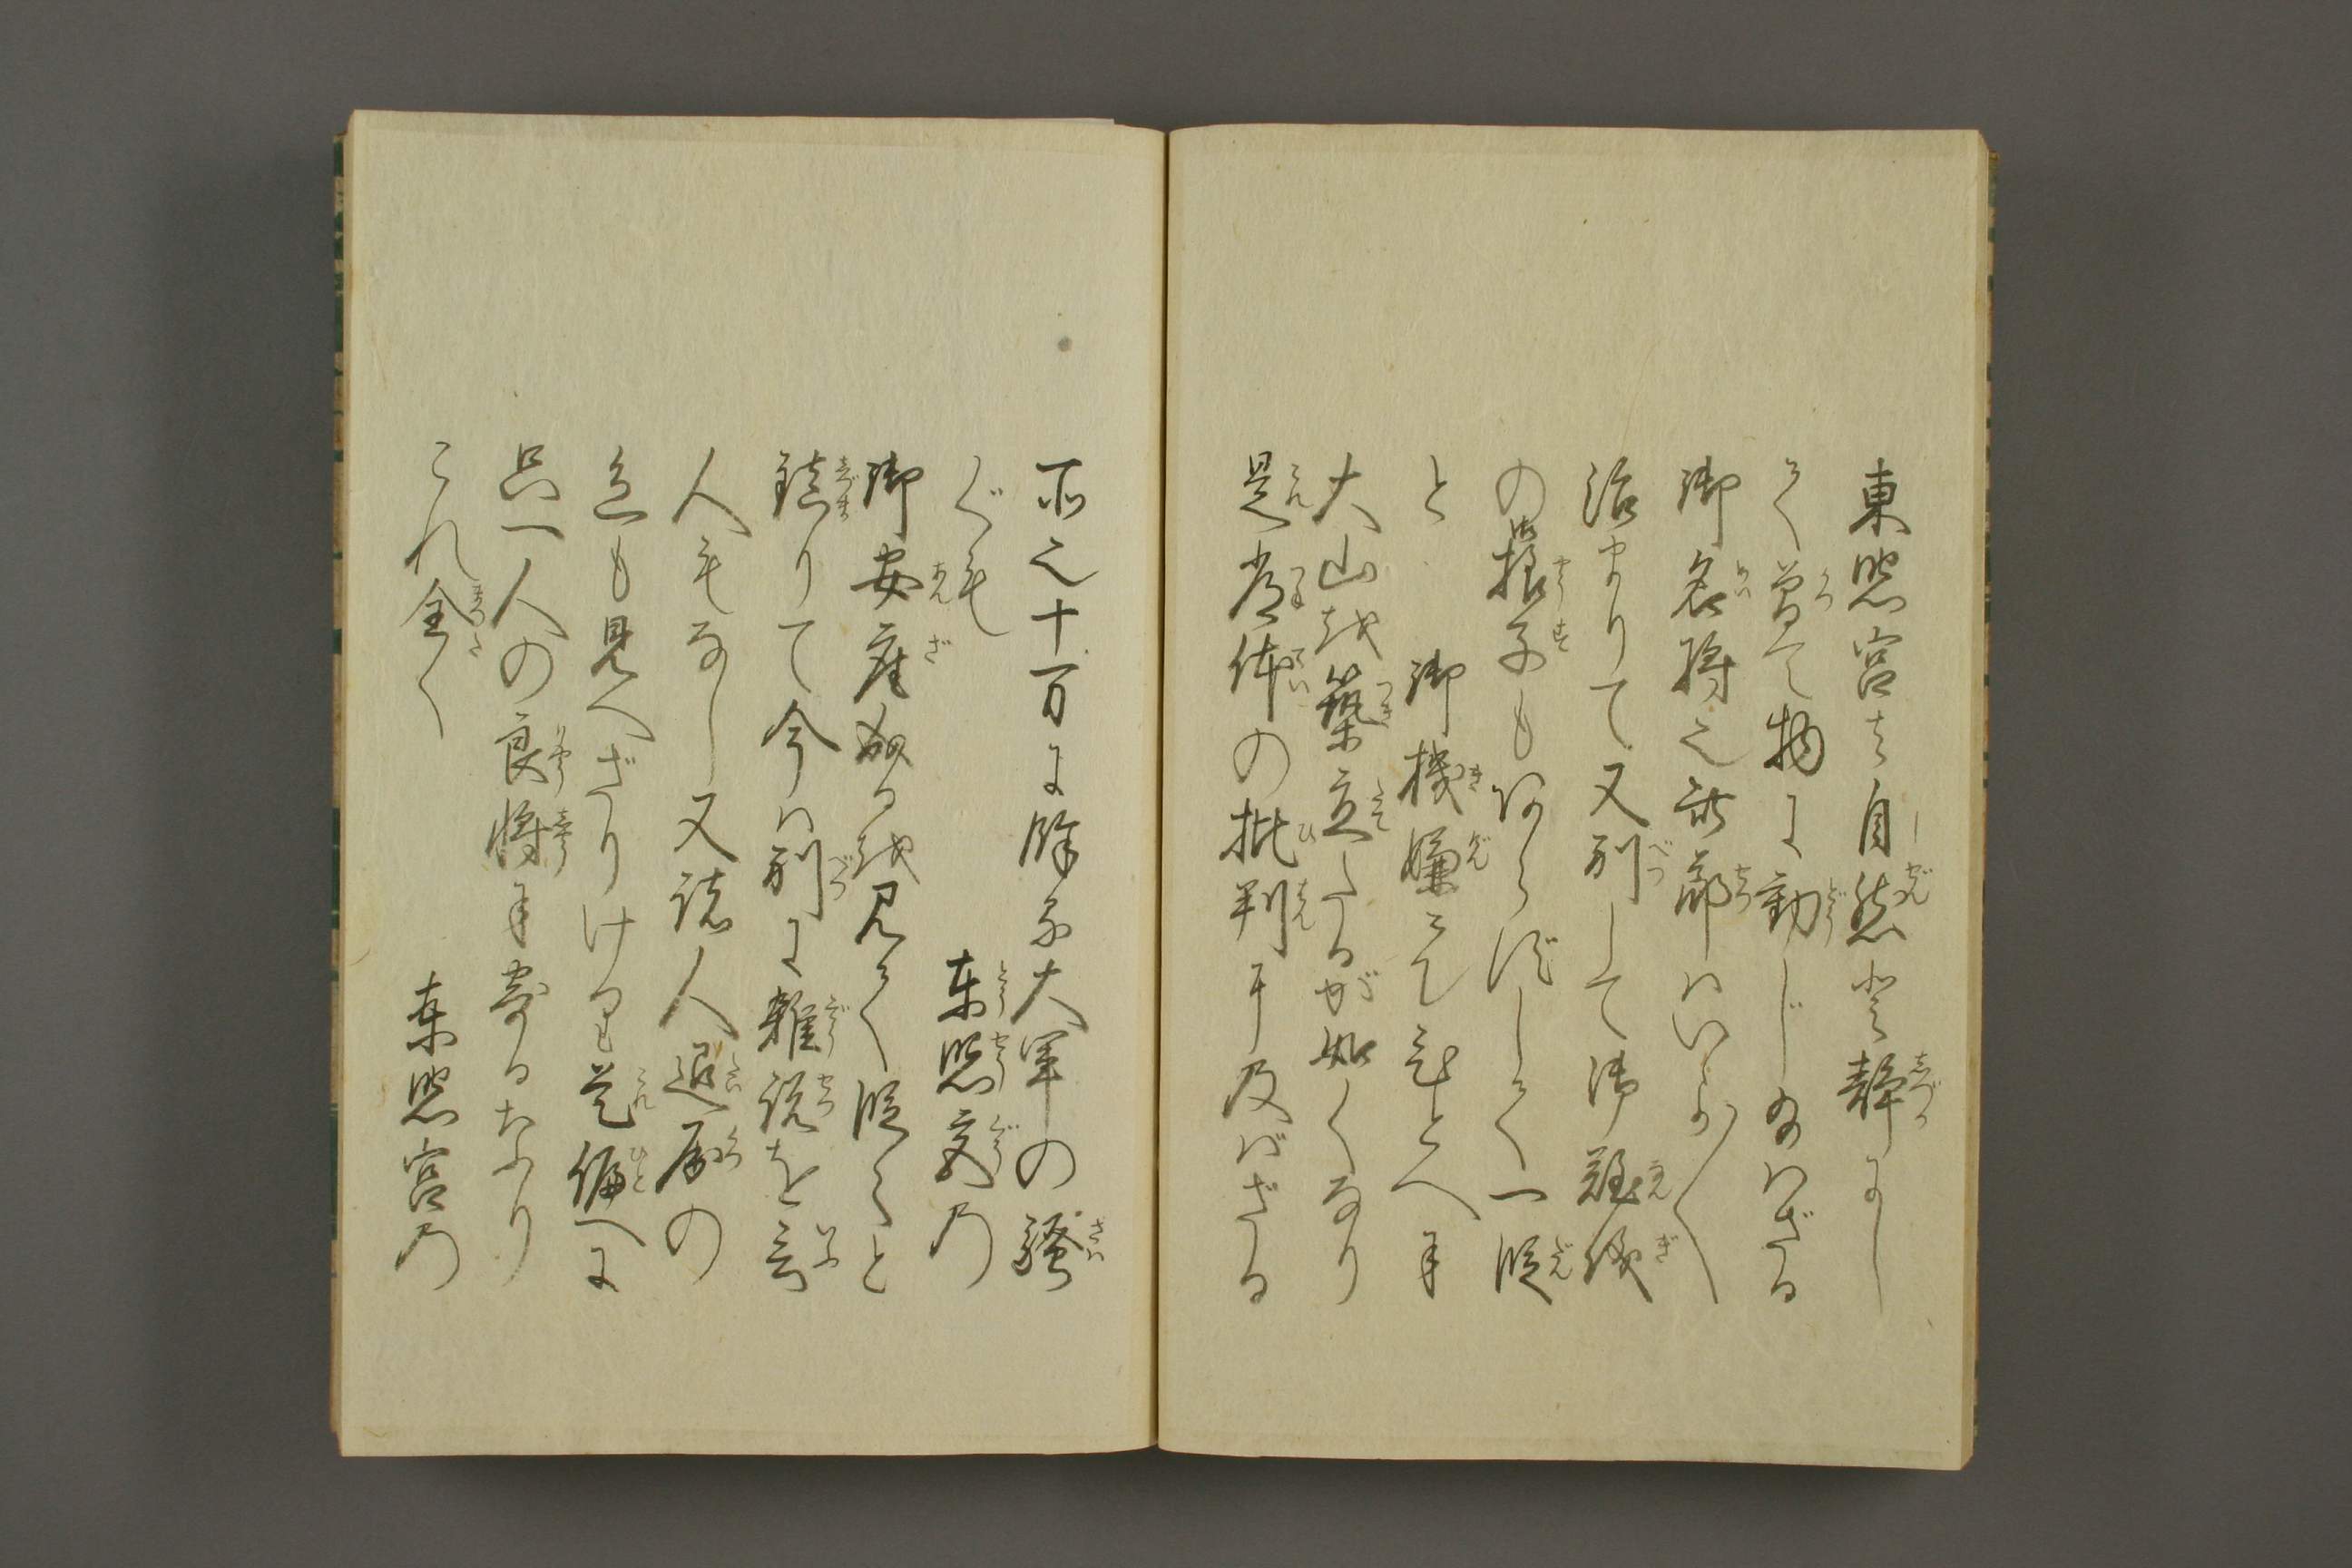 東照宮は自然と静にし
て曽て物に動じ給はざる
御名将之諸節はいよ〳〵
治まりて又別して御難儀
の様子もあらずして一段
と　御機嫌にて是とへに
大山を築立たるが如くなり
是常体の批判に及ばざる
所之十万に余る大軍の騒
ぐも　東照宮乃
御安座なるを見て段々と
鎮りて今は別に雑説を言
人もなし又諸人退屈の
色も見へざりけり是偏へに
只一人の良将に寄るなり
これ全く　東照宮乃